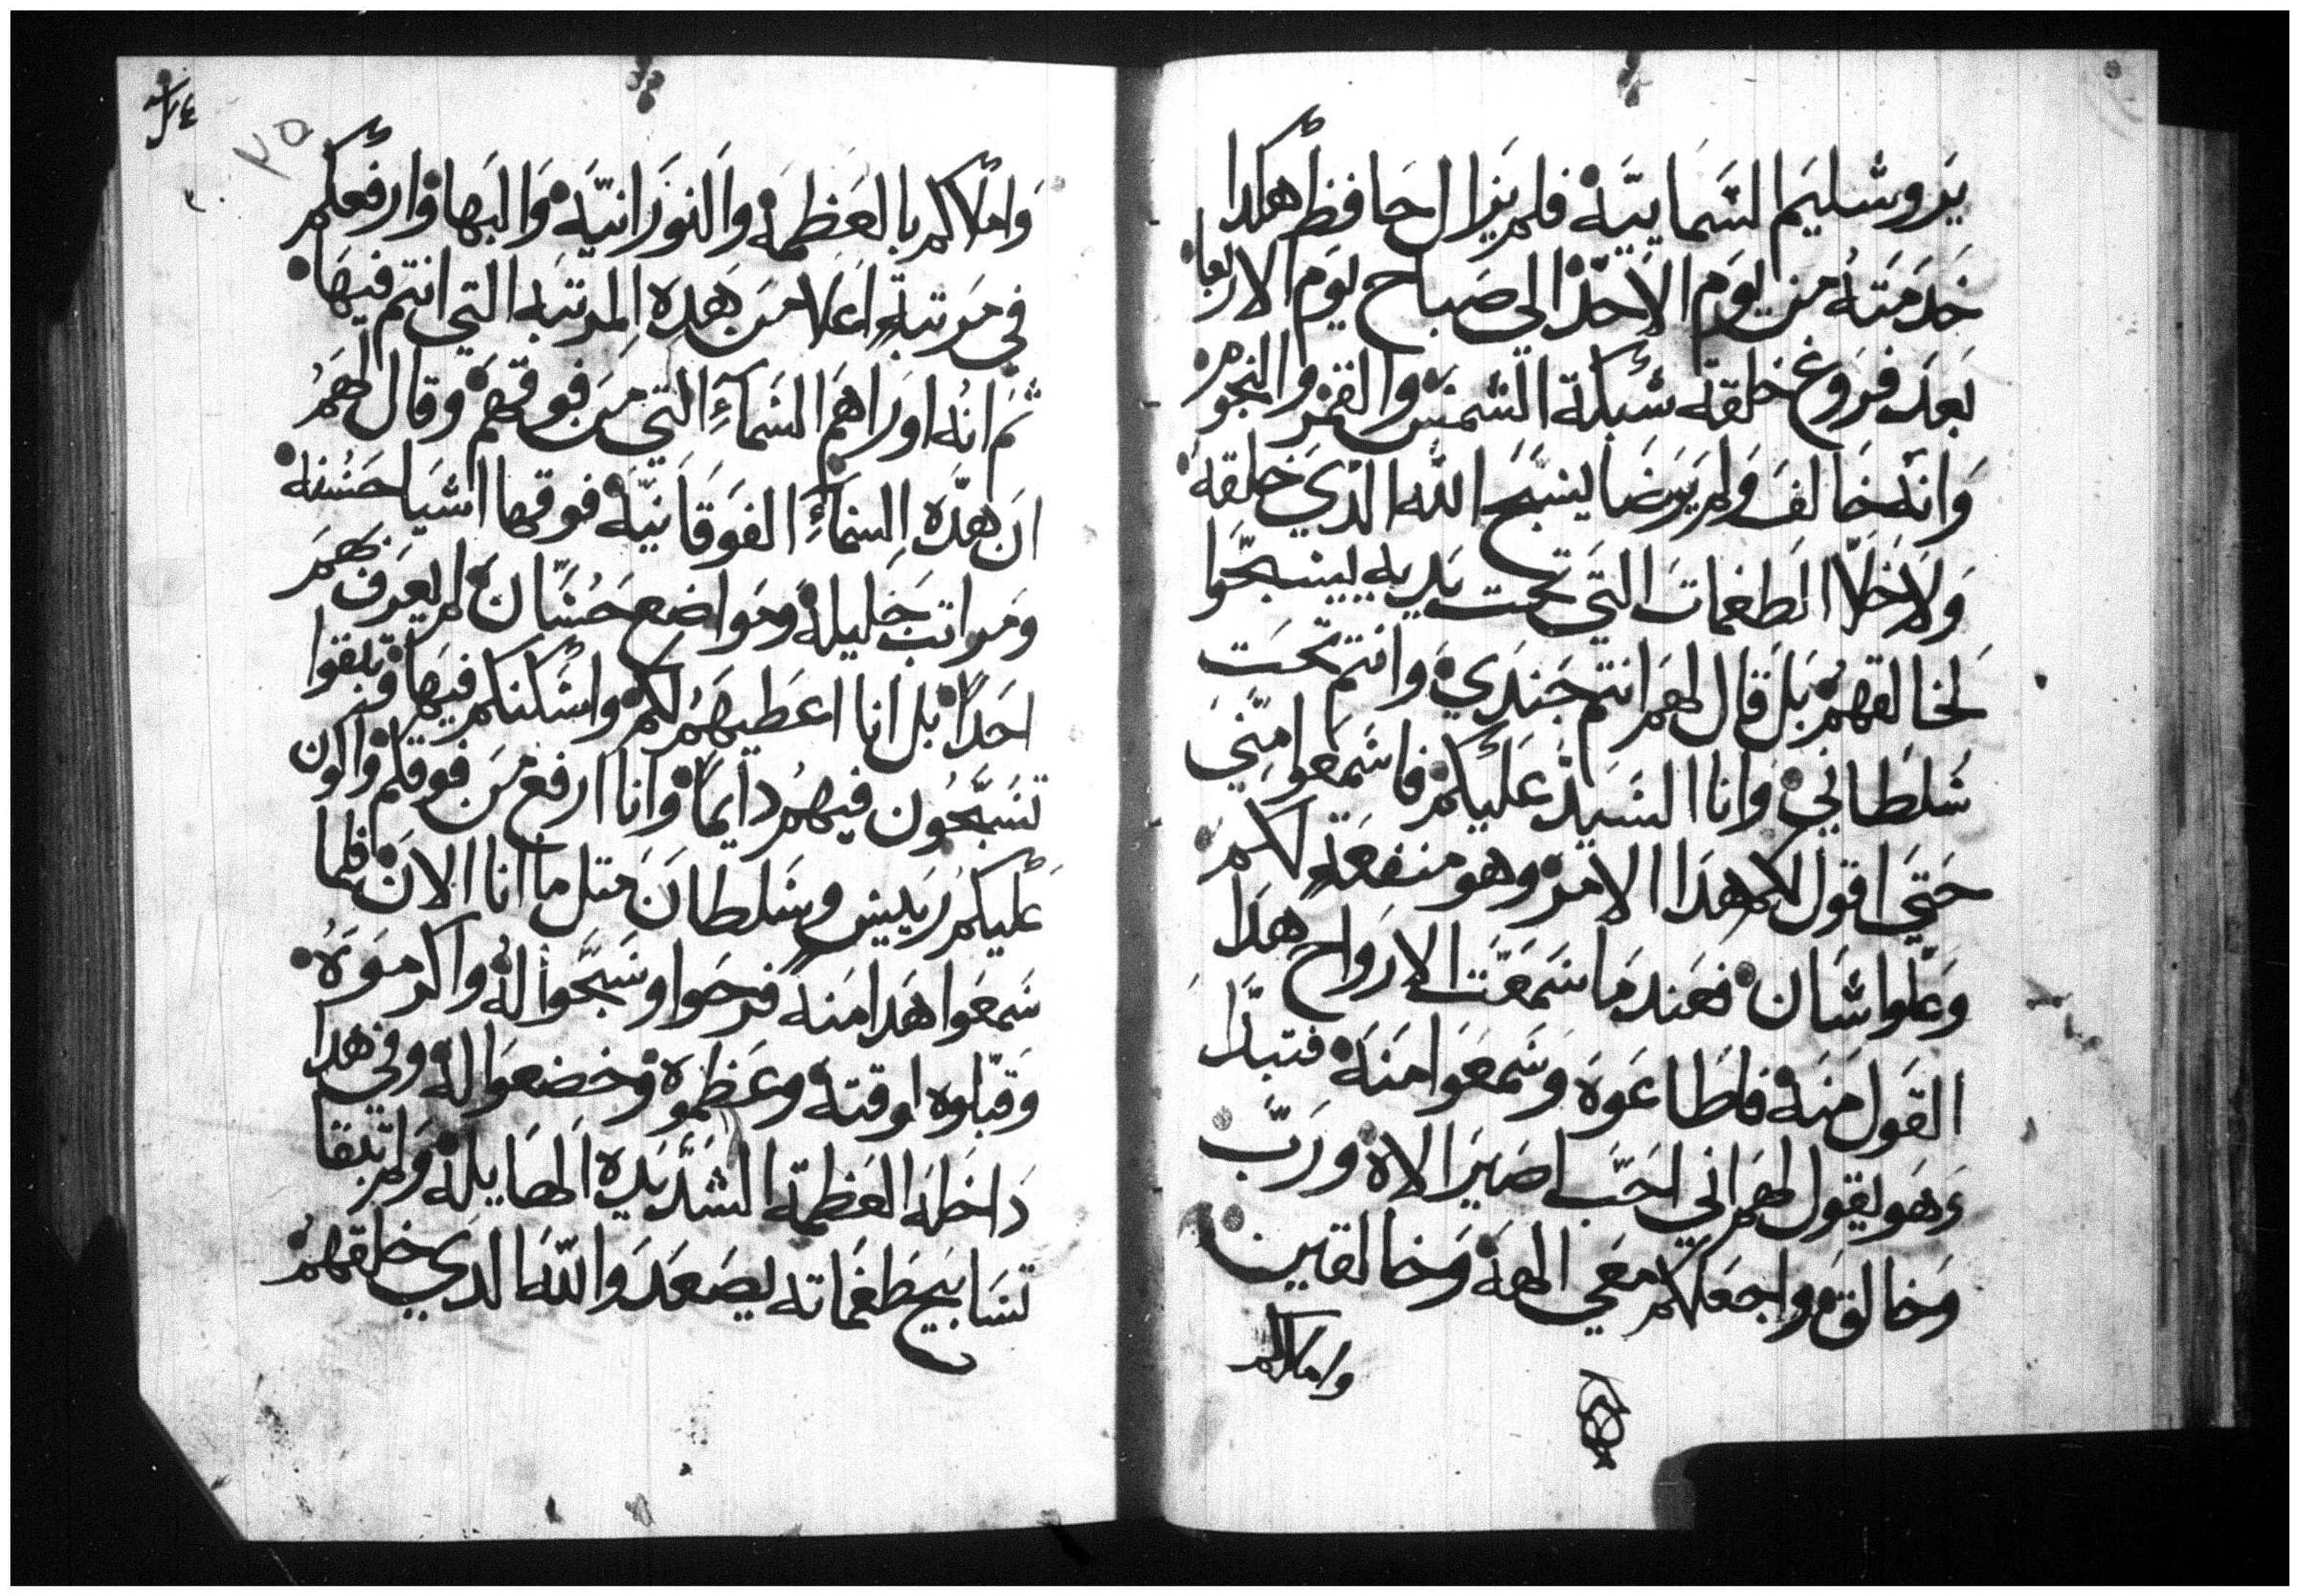 يَروشليَم السَمَاييَة فلم يَزال حَافظ هكدا
خدمَتهُ من يوَم الاحَد الي صَباح يوَم الاربعا
بَعدَ فرَوغ خلقة شبكة الشمسَ والقمَر والنجوَم
وَانهَ خالفَ وَلم يَرضا ليسَبحَ الله الدي خلقهَ
وَلاخلا الطغمات التي تحت يَديه ليسبحَوا
لخالقهم بَل قال لهمَ انتم جَندَي وَانتم تحَت
سَلطاني وَانا السَيدَ عَليكم فاسَمعَوا منيَ
حَتيَ اقول لكم هدَا الامَر وهو منفعَة لكم
وعَلوا شان فعَند مَا سَمعَت الارَواح هدَا
القوَل منَه فاطَاعَوهَ وسَمعَوا منهَ فتبدَا
وَهوَ يقول لهمَ اني احَب اصَيرَ الاه ورَب
وَخالق وَاجعَلكم معَي الههَ وَخالقين
واملاكم
٣٤
٢٥
وَاملاكم بالعَظمهَ والنورَانيَة وَالبَها وَارفعكم
في مَرتبة اعَلا منَ هدهِ المرتبَه التي انتم فيهَا
ثم انهُ اورَاهمَ السَمآءِ التي منَ فوقهمَ وقال لهَمُ
انَ هدَه السَمآءِ الفوَقانيَة فوقها اشيَا حسَنه
وَمراتبَ جَليلة ومَواضع حَسَان لم يعَرف بهَم
احَدا بل انا اعَطيهَم لكم واسَكنكم فيهَا وتبقوا
تسَبحُون فيهم دايمَا وانا ارفع منَ فوقكم وَاكون
عَليكم رَييسِ وسَلطانَ متل ما انا الانَ فلما
سَمعَوا هَدا منهَ فرحَوا وسَبحَوا لهُ واكرموَهُ
وَقبلوه اوقتهَ وعَظموهَ وخضعَوا لهَ وفي هدا
دَاخلهَ العَظمة الشدَيدهَ الهَايلة وَلم تبقا
تسَابيَح طغمَاته يصَعدَوا للهَ الدَي خلقهمُ